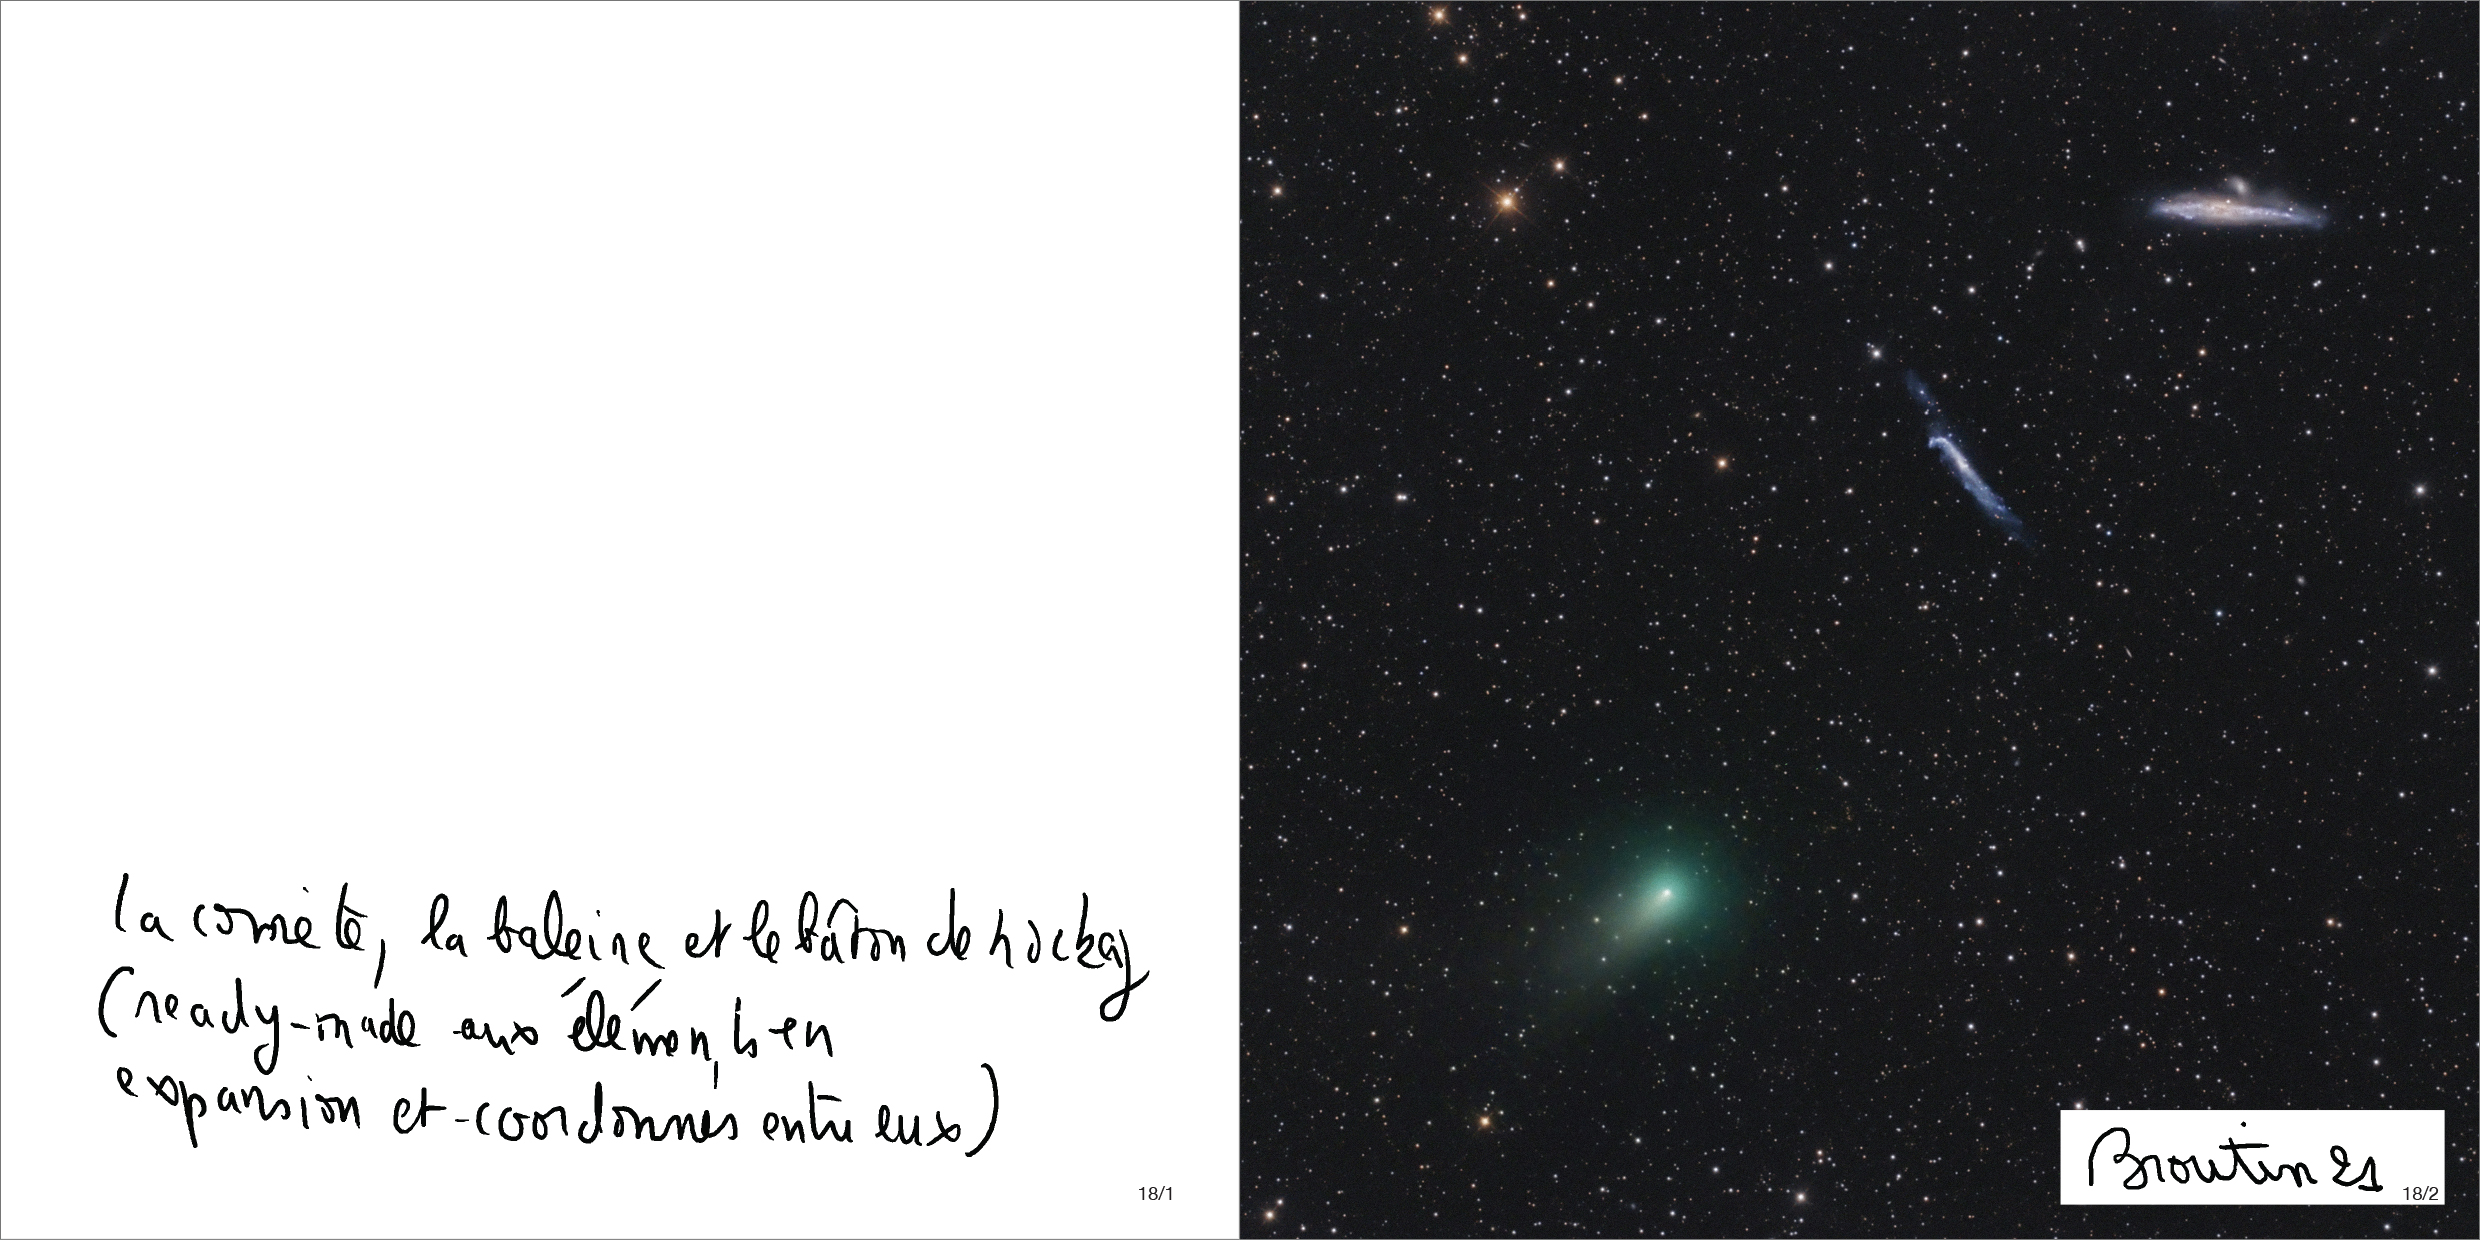 la comète, la baleine et le bâton de hockey
(ready-made aux éléments en
expansion et coordonnés entre eux)
18/1
Broutin 21
18/2